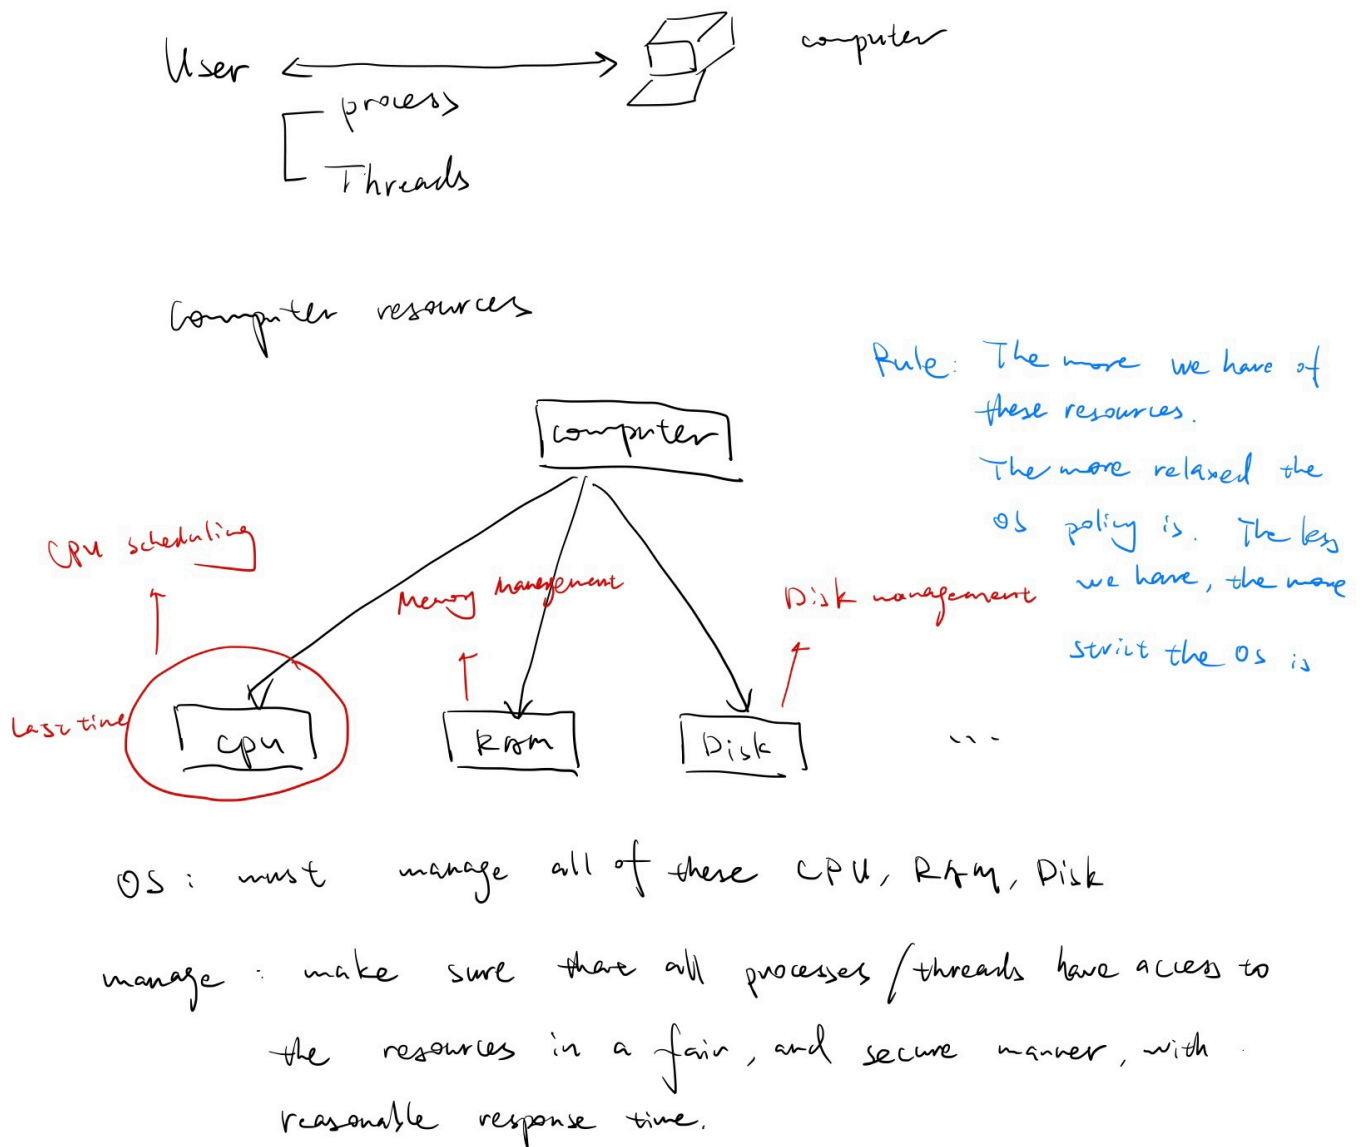 User
computer
process
Threads
Computer resources
Rule: The more we have of
these resources.
The more relaxed the
OS policy is. The less
we have, the more
strict the OS is
computer
CPU scheduling
Memory Management
Disk management
Last time
CPU
RAM
Disk
...
OS : must manage all of these CPU, RAM, Disk
manage : make sure that all processes / threads have access to
the resources in a fair, and secure manner, with
reasonable response time.